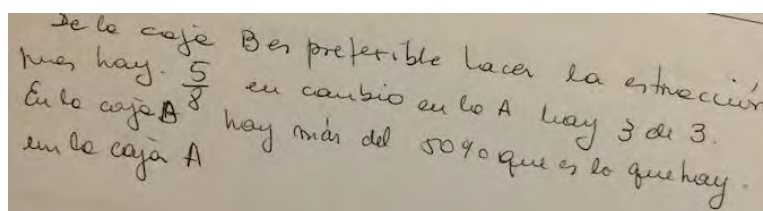 De la caja B es preferible hacer la extracción
pues hay. 5/8 en cambio en la A hay 3 de 3.
En la caja B hay más del 50% que es lo que hay.
en la caja A